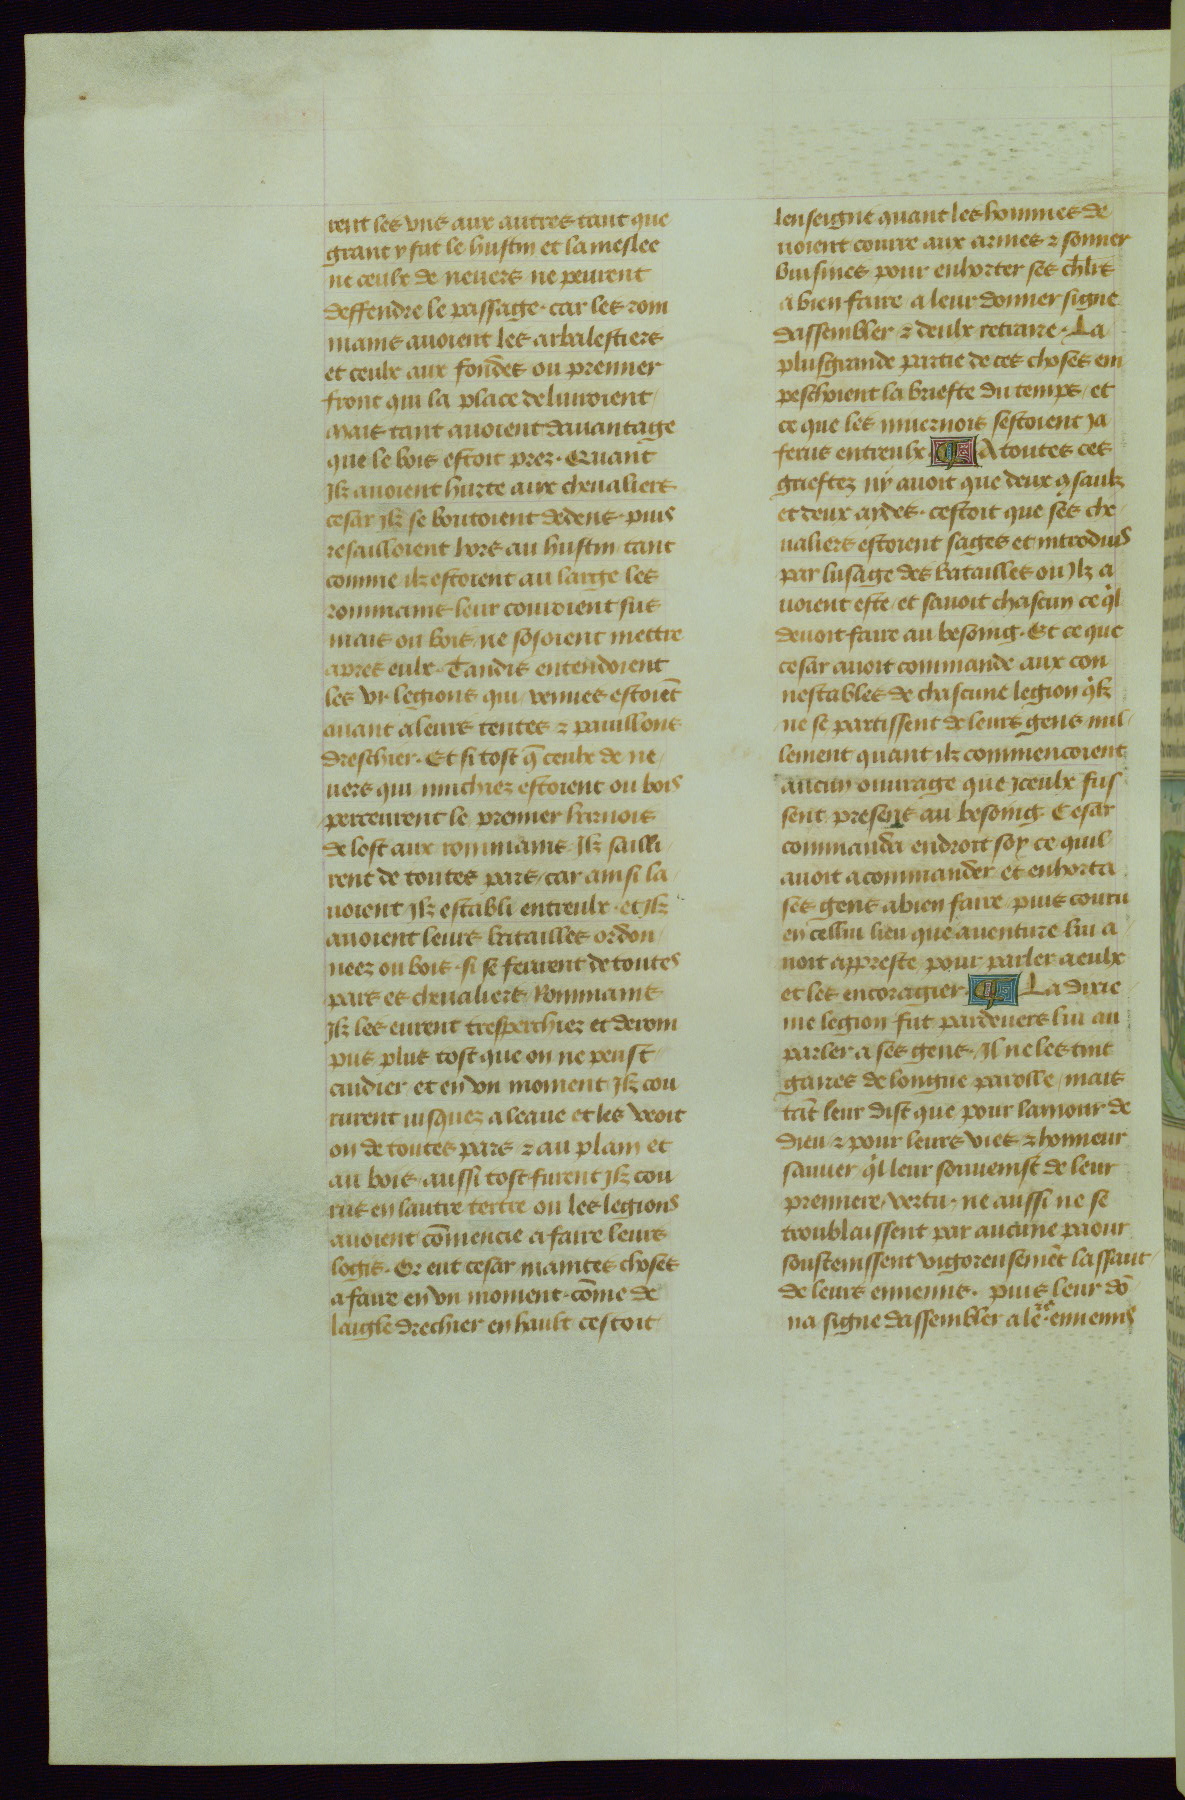 rent les vns aux autres tant que
grant y fut le hustin et la meslee
ne ceulx de neuers ne peurent
deffendre le passage · car les rom
mains auoient les arbalestiers
et ceulx aux fondes ou premier
front qui la place deliuroient /
Mais tant auoient dauantage
que le bois estoit prez · Quant
Jlz auoient hurte aux cheualiers
cesar jlz se boutoient dedens · puis
resailloient hors au hustin / tant
comme ilz estoient au large les
rommains leur couroient sus
mais ou bois ne sosoient mettre
apres eulx · Tandis entendoient
les vi · legions qui venues estoiēt
auant a leurs tentes ⁊ pauillons
dreschier · Et si tost q̄ ceulx de ne /
uers qui muchiez estoient ou bois
perceurent le premier harnois
de lost aux rommains · Jlz sailli
rent de toutes pars / car ainsi la /
uoient jlz establi entreulx · et jlz
auoient leurs batailles ordon /
neez ou bois · si se ferirent de toutes
pars es cheualiers / Rommains
Jlz les eurent tresperchiez et derom
pus plus tost que on ne peust
cuidier et en vn moment jlz cou
rurent iusquez a leaue et les veoit
on de toutes pars ⁊ au plain et
au bois / aussi tost furent jlz cou
rus en lautre tertre ou les legions
auoient cōmencie a faire leurs
logis · Or eut cesar maintes choses
a faire en vn moment · cōme de
laigle drechier en hault cestoit
lenseigne quant les hommes de
uoient courre aux armes ⁊ sonner
buisines pour enhorter ses chl̄rs
a bien faire a leur donner signe
dassembler ⁊ deulx retraire · La
plusgrande partie de ces choses em
peschoient la briefte du temps / et
ce que les niuernois sestoient ja
ferus entreulx · A toutes ces
grieftez ny auoit que deux ꝯsaulz
et deux aydes · cestoit que ses che /
ualiers estoient sages et introduis
par lusage des batailles ou jlz a
uoient este / et sauoit chascun ce q̇l
deuoit faire au besoing · Et ce que
cesar auoit commande aux con
nestables de chascune legion q̇lz
ne se partissent de leurs gens nul /
lement quant ilz commencoient
aucun ouurage que jceulx fus
sent presens au besoing Cesar
commanda endroit soy ce quil
auoit a commander et enhorta
ses gens a bien faire / puis couru
en cellui lieu que auenture lui a
uoit appreste pour parler a eulx
et les encoragier · La dixie
me legion fut pardeuers lui au
parler a ses gens · Jl ne les tint
gaires de longue parolle / mais
tāt leur dist que pour lamour de
dieu ⁊ pour leurs vies ⁊ honneur
sauuer q̇l leur souuenist de leur
premiere vertu · ne aussi ne se
troublaissent par aucune paour
soustenissent vigoreusemēt lassaut /
de leurs ennemis · puis leur dō
na signe dassembler a leᷣrs · ennemis